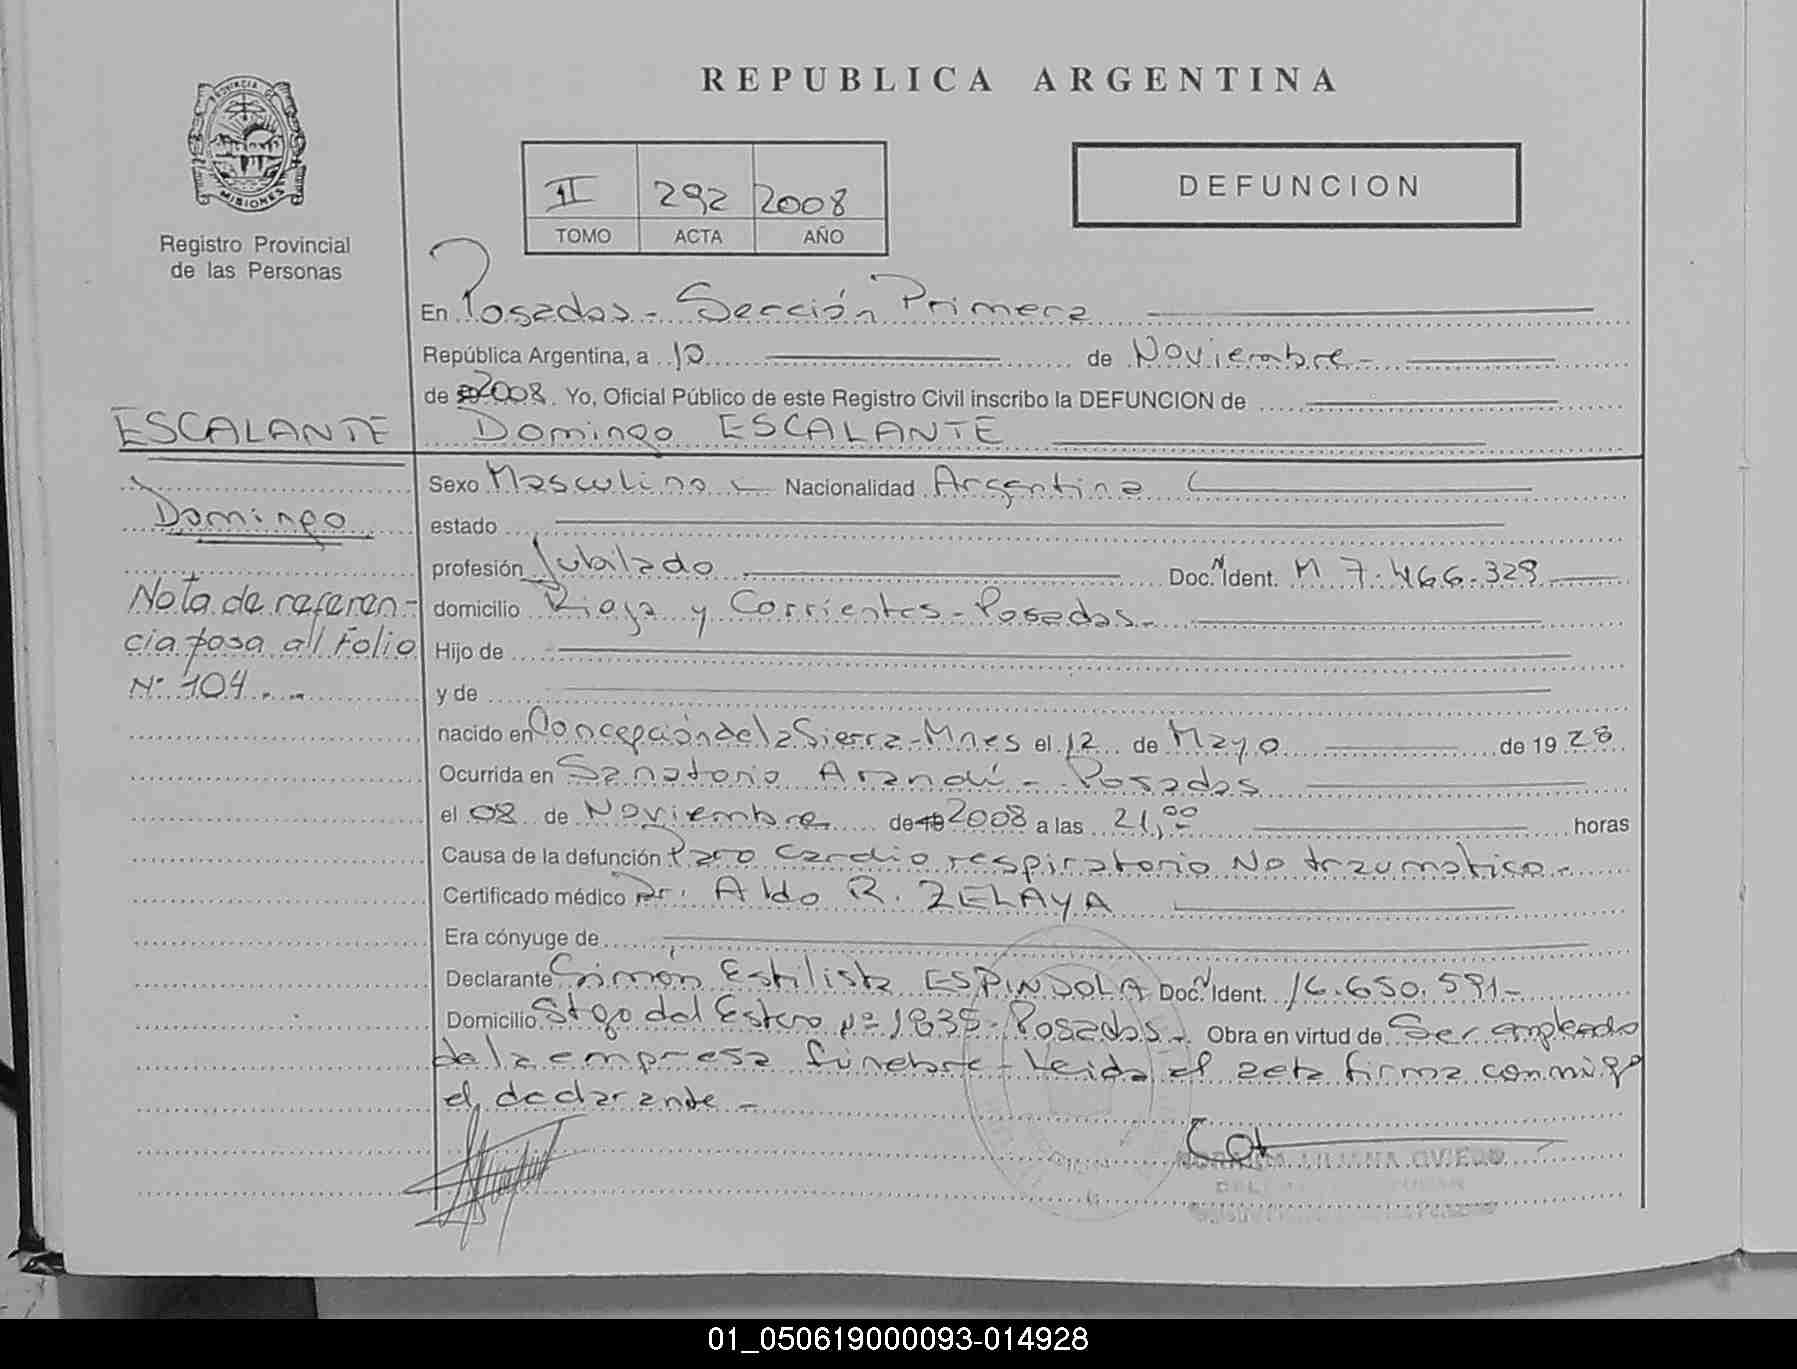 REPUBLICA ARGENTINA
PROVINCIA D
MISIONES
Registro Provincial
de las Personas
II 292 2008
TOMO ACTA AÑO
DEFUNCION
En Posadas - Sección Primera
República Argentina, a 10 de Noviembre -
de 2008. Yo, Oficial Público de este Registro Civil inscribo la DEFUNCION de
ESCALANTE Domingo ESCALANTE
Sexo Masculino Nacionalidad Argentina
Domingo
estado
profesión Jubilado Doc. N Ident. M 7.466.329
Nota de referen-
domicilio Rioja y Corrientes - Posadas -
cia pasa al Folio
Hijo de
Nº 104 . . -
y de
nacido en Concepción de la Sierra - Mnes el 12 de Mayo de 1928
Ocurrida en Sanatorio Arandí - Posadas
el 08 de Noviembre de 19 2008 a las 21,00 horas
Causa de la defunción Paro cardio respiratorio No traumatico -
Certificado médico Dr. Aldo R. ZELAYA
Era cónyuge de
Declarante Simón Estilista ESPINDOLA Doc. N Ident. 16.650.591 -
Domicilio Stgo del Estero Nº 1835 - Posadas - Obra en virtud de Ser empleado
de la empresa fúnebre - Leida el acta firma conmigo
el declarante -
LILIANA OVIEDO
01_050619000093-014928